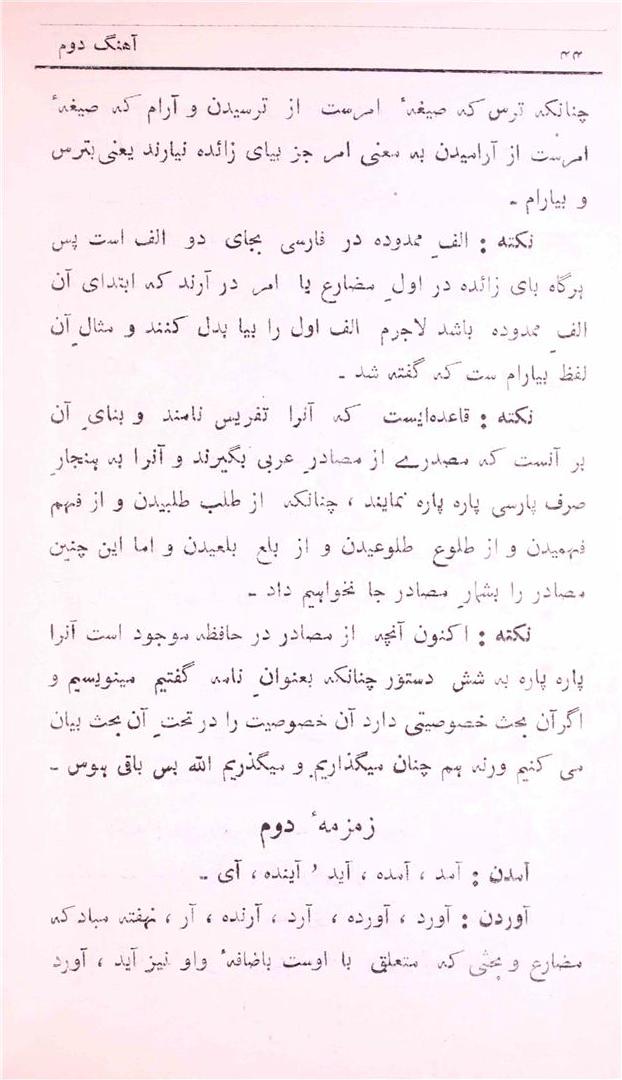 ۴۴ آهنگ دوم
چنانکه ترس که صیغهٔ امرست از ترسیدن و آرام که صیغهٔ
امرست از آرامیدن به معنی امر جز ببای زائده نیارند یعنی بترس
و بیارام ـ
نکته : الفِ ممدوده در فارسی بجای دو الف است پس
هرگاه بای زائده در اولِ مضارع یا امر در آرند که ابتدای آن
الفِ ممدوده باشد لاجرم الف اول را بیا بدل کنند و مثالِ آن
لفظ بیارام ست که گفته شد ـ
نکته : قاعده‌ایست که آنرا تفریس نامند و بنایِ آن
بر آنست که مصدرے از مصادرِ عربی بگیرند و آنرا به هنجارِ
صرف پارسی پاره پاره نمایند ، چنانکه از طلب طلبیدن و از فهم
فهمیدن و از طلوع طلوعیدن و از بلع بلعیدن و اما این چنین
مصادر را بشمارِ مصادر جا نخواهیم داد ـ
نکته : اکنون آنچه از مصادر در حافظه موجود است آنرا
پاره پاره به شش دستور چنانکه بعنوانِ نامه گفتیم مینویسیم و
اگر آن بحث خصوصیتی دارد آن خصوصیت را در تحتِ آن بحث بیان
می کنیم ورنه هم چنان میگذاریم و میگذریم الله بس باقی هوس ـ
زمزمهٔ دوم
آمدن : آمد ، آمده ، آید ، آینده ، آی ـ
آوردن : آورد ، آورده ، آرد ، آرنده ، آر ، نهفته مباد که
مضارع و بحثی که متعلق با اوست باضافهٔ واو نیز آید ، آورد